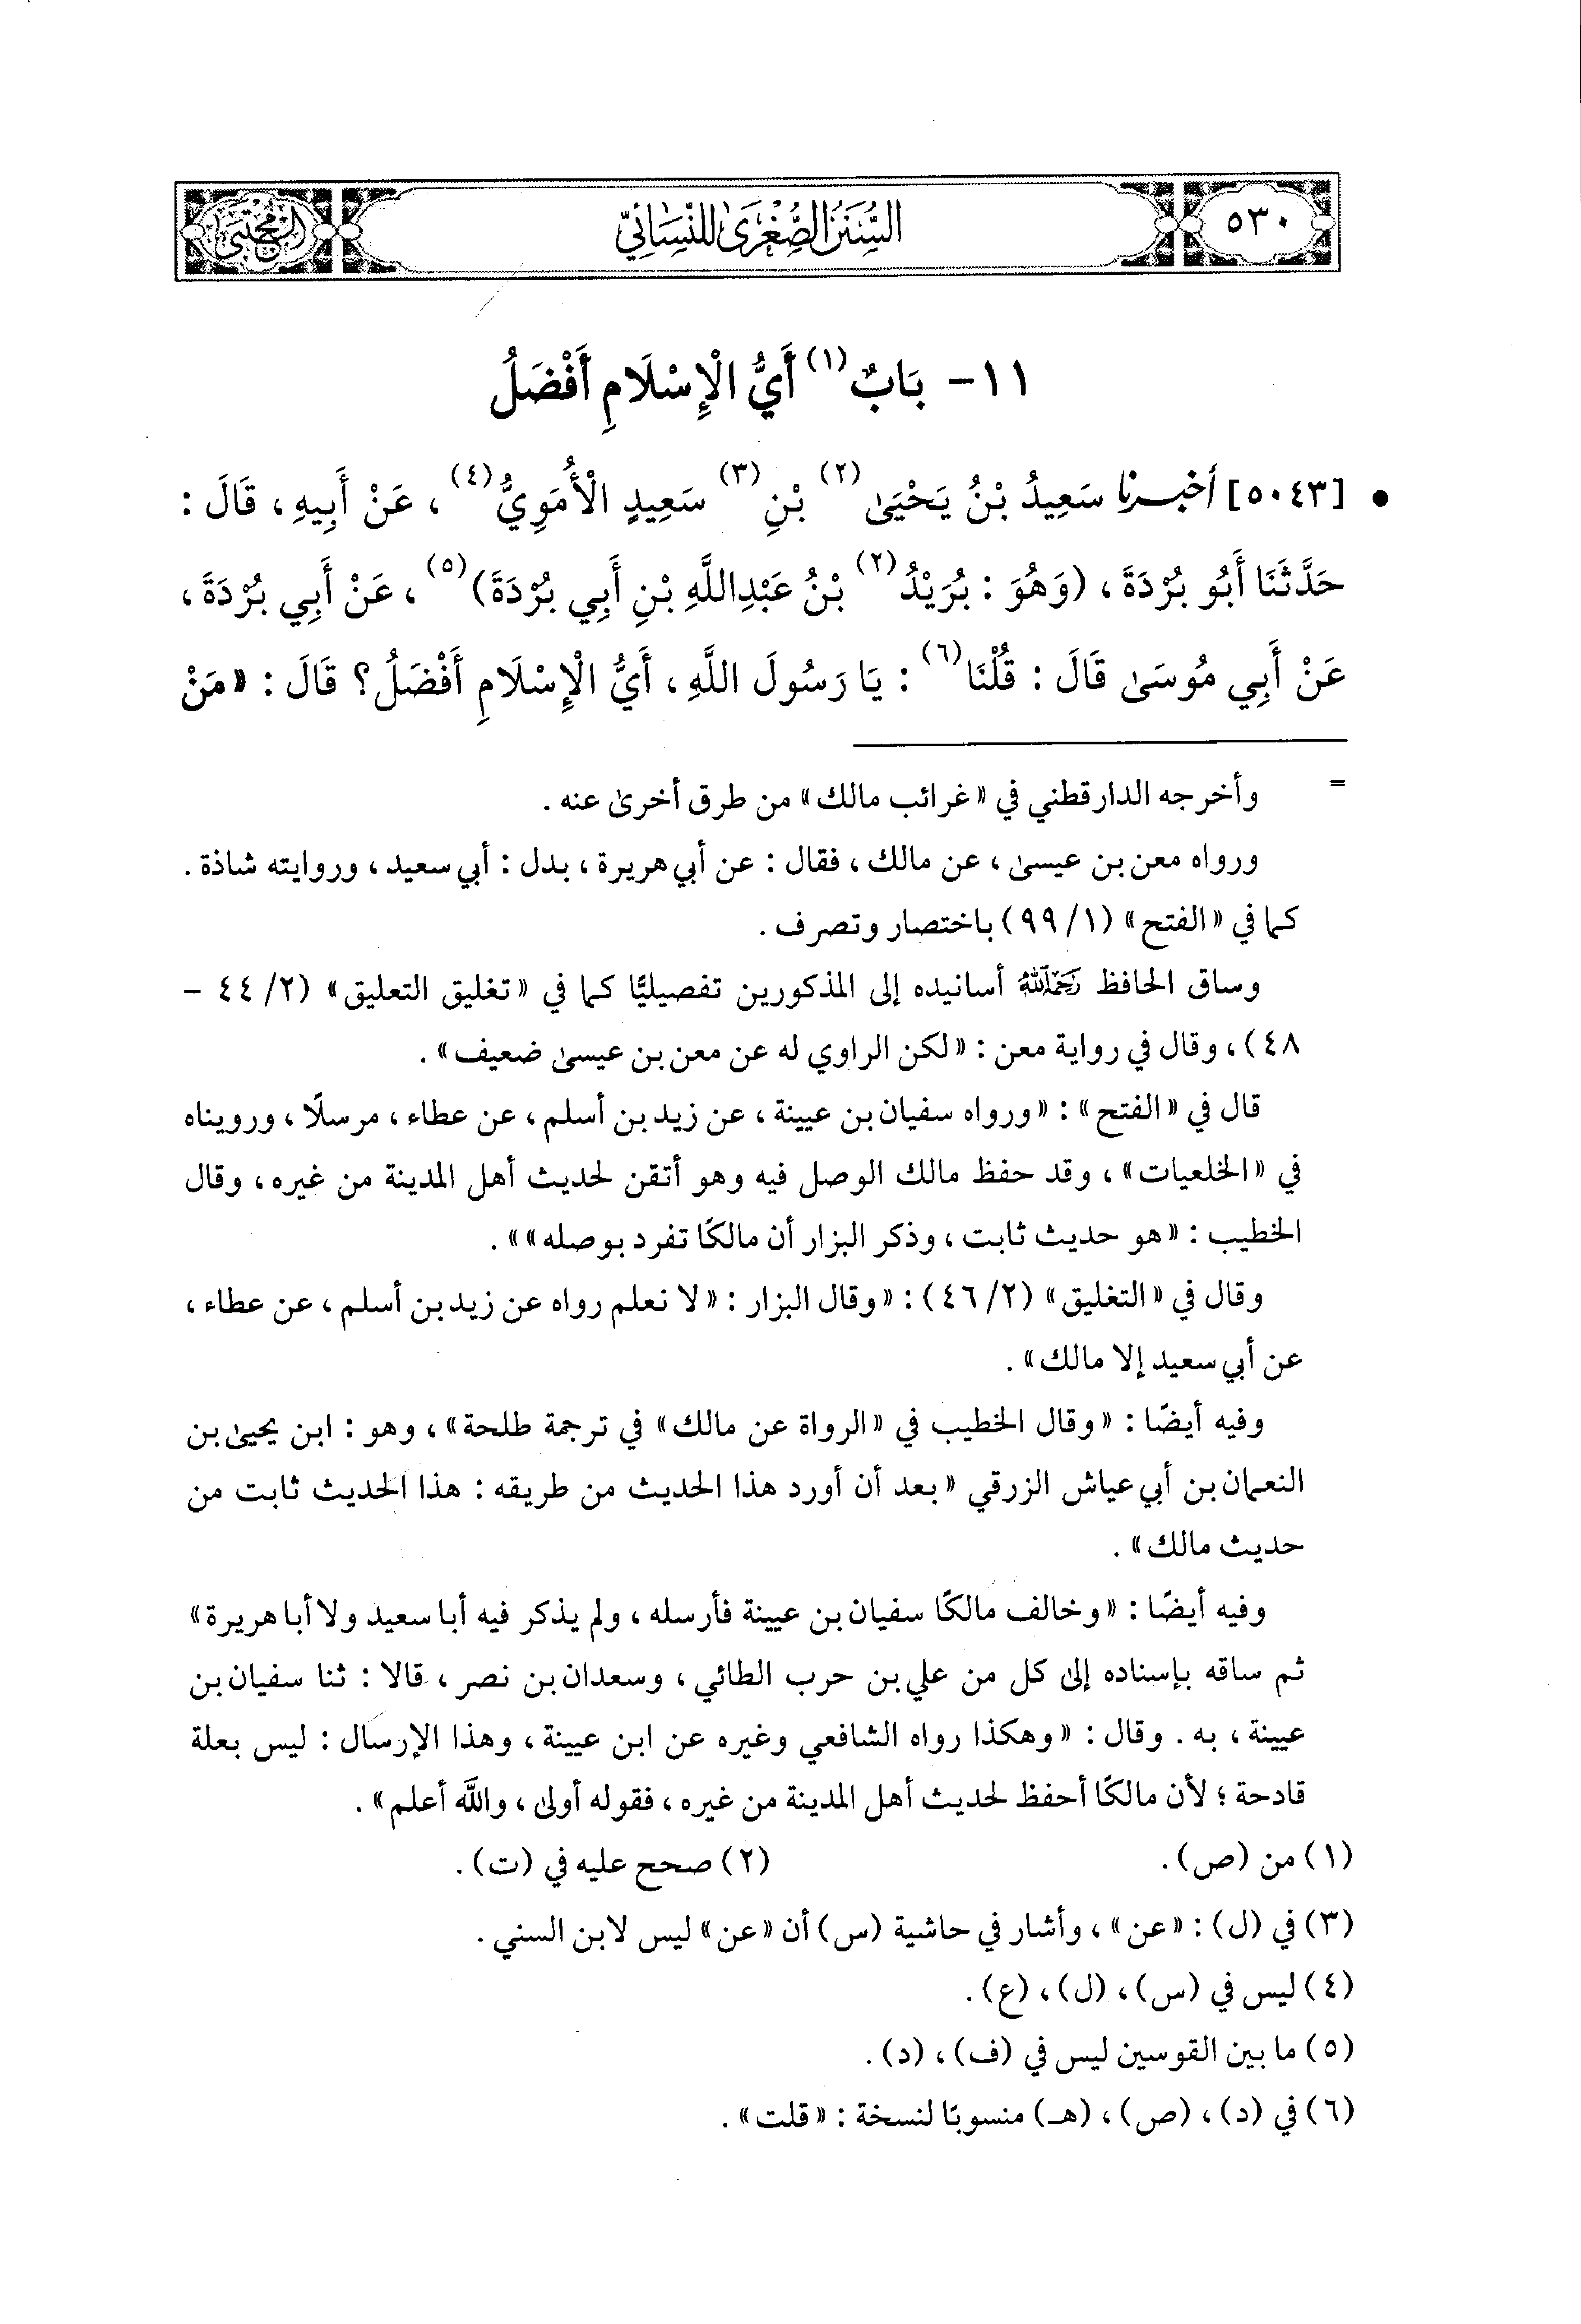 ٥٣٠
السُّنَنُ الصُّغْرَىٰ لِلنَّسَائِيّ
المجتبى
١١- بَابٌ(١) أَيُّ الْإِسْلَامِ أَفْضَلُ
• [٥٠٤٣] أخبرنا سَعِيدُ بْنُ يَحْيَىٰ(٢) بْنِ(٣) سَعِيدٍ الْأُمَوِيُّ(٤)، عَنْ أَبِيهِ، قَالَ:
حَدَّثَنَا أَبُو بُرْدَةَ، (وَهُوَ: بُرَيْدُ(٢) بْنُ عَبْدِاللَّهِ بْنِ أَبِي بُرْدَةَ)(٥)، عَنْ أَبِي بُرْدَةَ،
عَنْ أَبِي مُوسَىٰ قَالَ: قُلْنَا(٦): يَا رَسُولَ اللَّهِ، أَيُّ الْإِسْلَامِ أَفْضَلُ؟ قَالَ: «مَنْ
= وأخرجه الدارقطني في «غرائب مالك» من طرق أخرىٰ عنه.
ورواه معن بن عيسىٰ، عن مالك، فقال: عن أبي هريرة، بدل: أبي سعيد، وروايته شاذة.
كما في «الفتح» (١/ ٩٩) باختصار وتصرف.
وساق الحافظ رَحِمَهُ اللَّهُ أسانيده إلى المذكورين تفصيليًّا كما في «تغليق التعليق» (٢/ ٤٤ -
٤٨)، وقال في رواية معن: «لكن الراوي له عن معن بن عيسىٰ ضعيف».
قال في «الفتح»: «ورواه سفيان بن عيينة، عن زيد بن أسلم، عن عطاء، مرسلًا، ورويناه
في «الخلعيات»، وقد حفظ مالك الوصل فيه وهو أتقن لحديث أهل المدينة من غيره، وقال
الخطيب: «هو حديث ثابت، وذكر البزار أن مالكًا تفرد بوصله»».
وقال في «التغليق» (٢/ ٤٦): «وقال البزار: «لا نعلم رواه عن زيد بن أسلم، عن عطاء،
عن أبي سعيد إلا مالك».
وفيه أيضًا: «وقال الخطيب في «الرواة عن مالك» في ترجمة طلحة»، وهو: ابن يحيىٰ بن
النعمان بن أبي عياش الزرقي «بعد أن أورد هذا الحديث من طريقه: هذا الحديث ثابت من
حديث مالك».
وفيه أيضًا: «وخالف مالكًا سفيان بن عيينة فأرسله، ولم يذكر فيه أبا سعيد ولا أبا هريرة»
ثم ساقه بإسناده إلى كل من علي بن حرب الطائي، وسعدان بن نصر، قالا: ثنا سفيان بن
عيينة، به. وقال: «وهكذا رواه الشافعي وغيره عن ابن عيينة، وهذا الإرسال: ليس بعلة
قادحة؛ لأن مالكًا أحفظ لحديث أهل المدينة من غيره، فقوله أولىٰ، واللَّه أعلم».
(١) من (ص). (٢) صحح عليه في (ت).
(٣) في (ل): «عن»، وأشار في حاشية (س) أن «عن» ليس لابن السني.
(٤) ليس في (س)، (ل)، (ع).
(٥) ما بين القوسين ليس في (ف)، (د).
(٦) في (د)، (ص)، (هـ) منسوبًا لنسخة: «قلت».